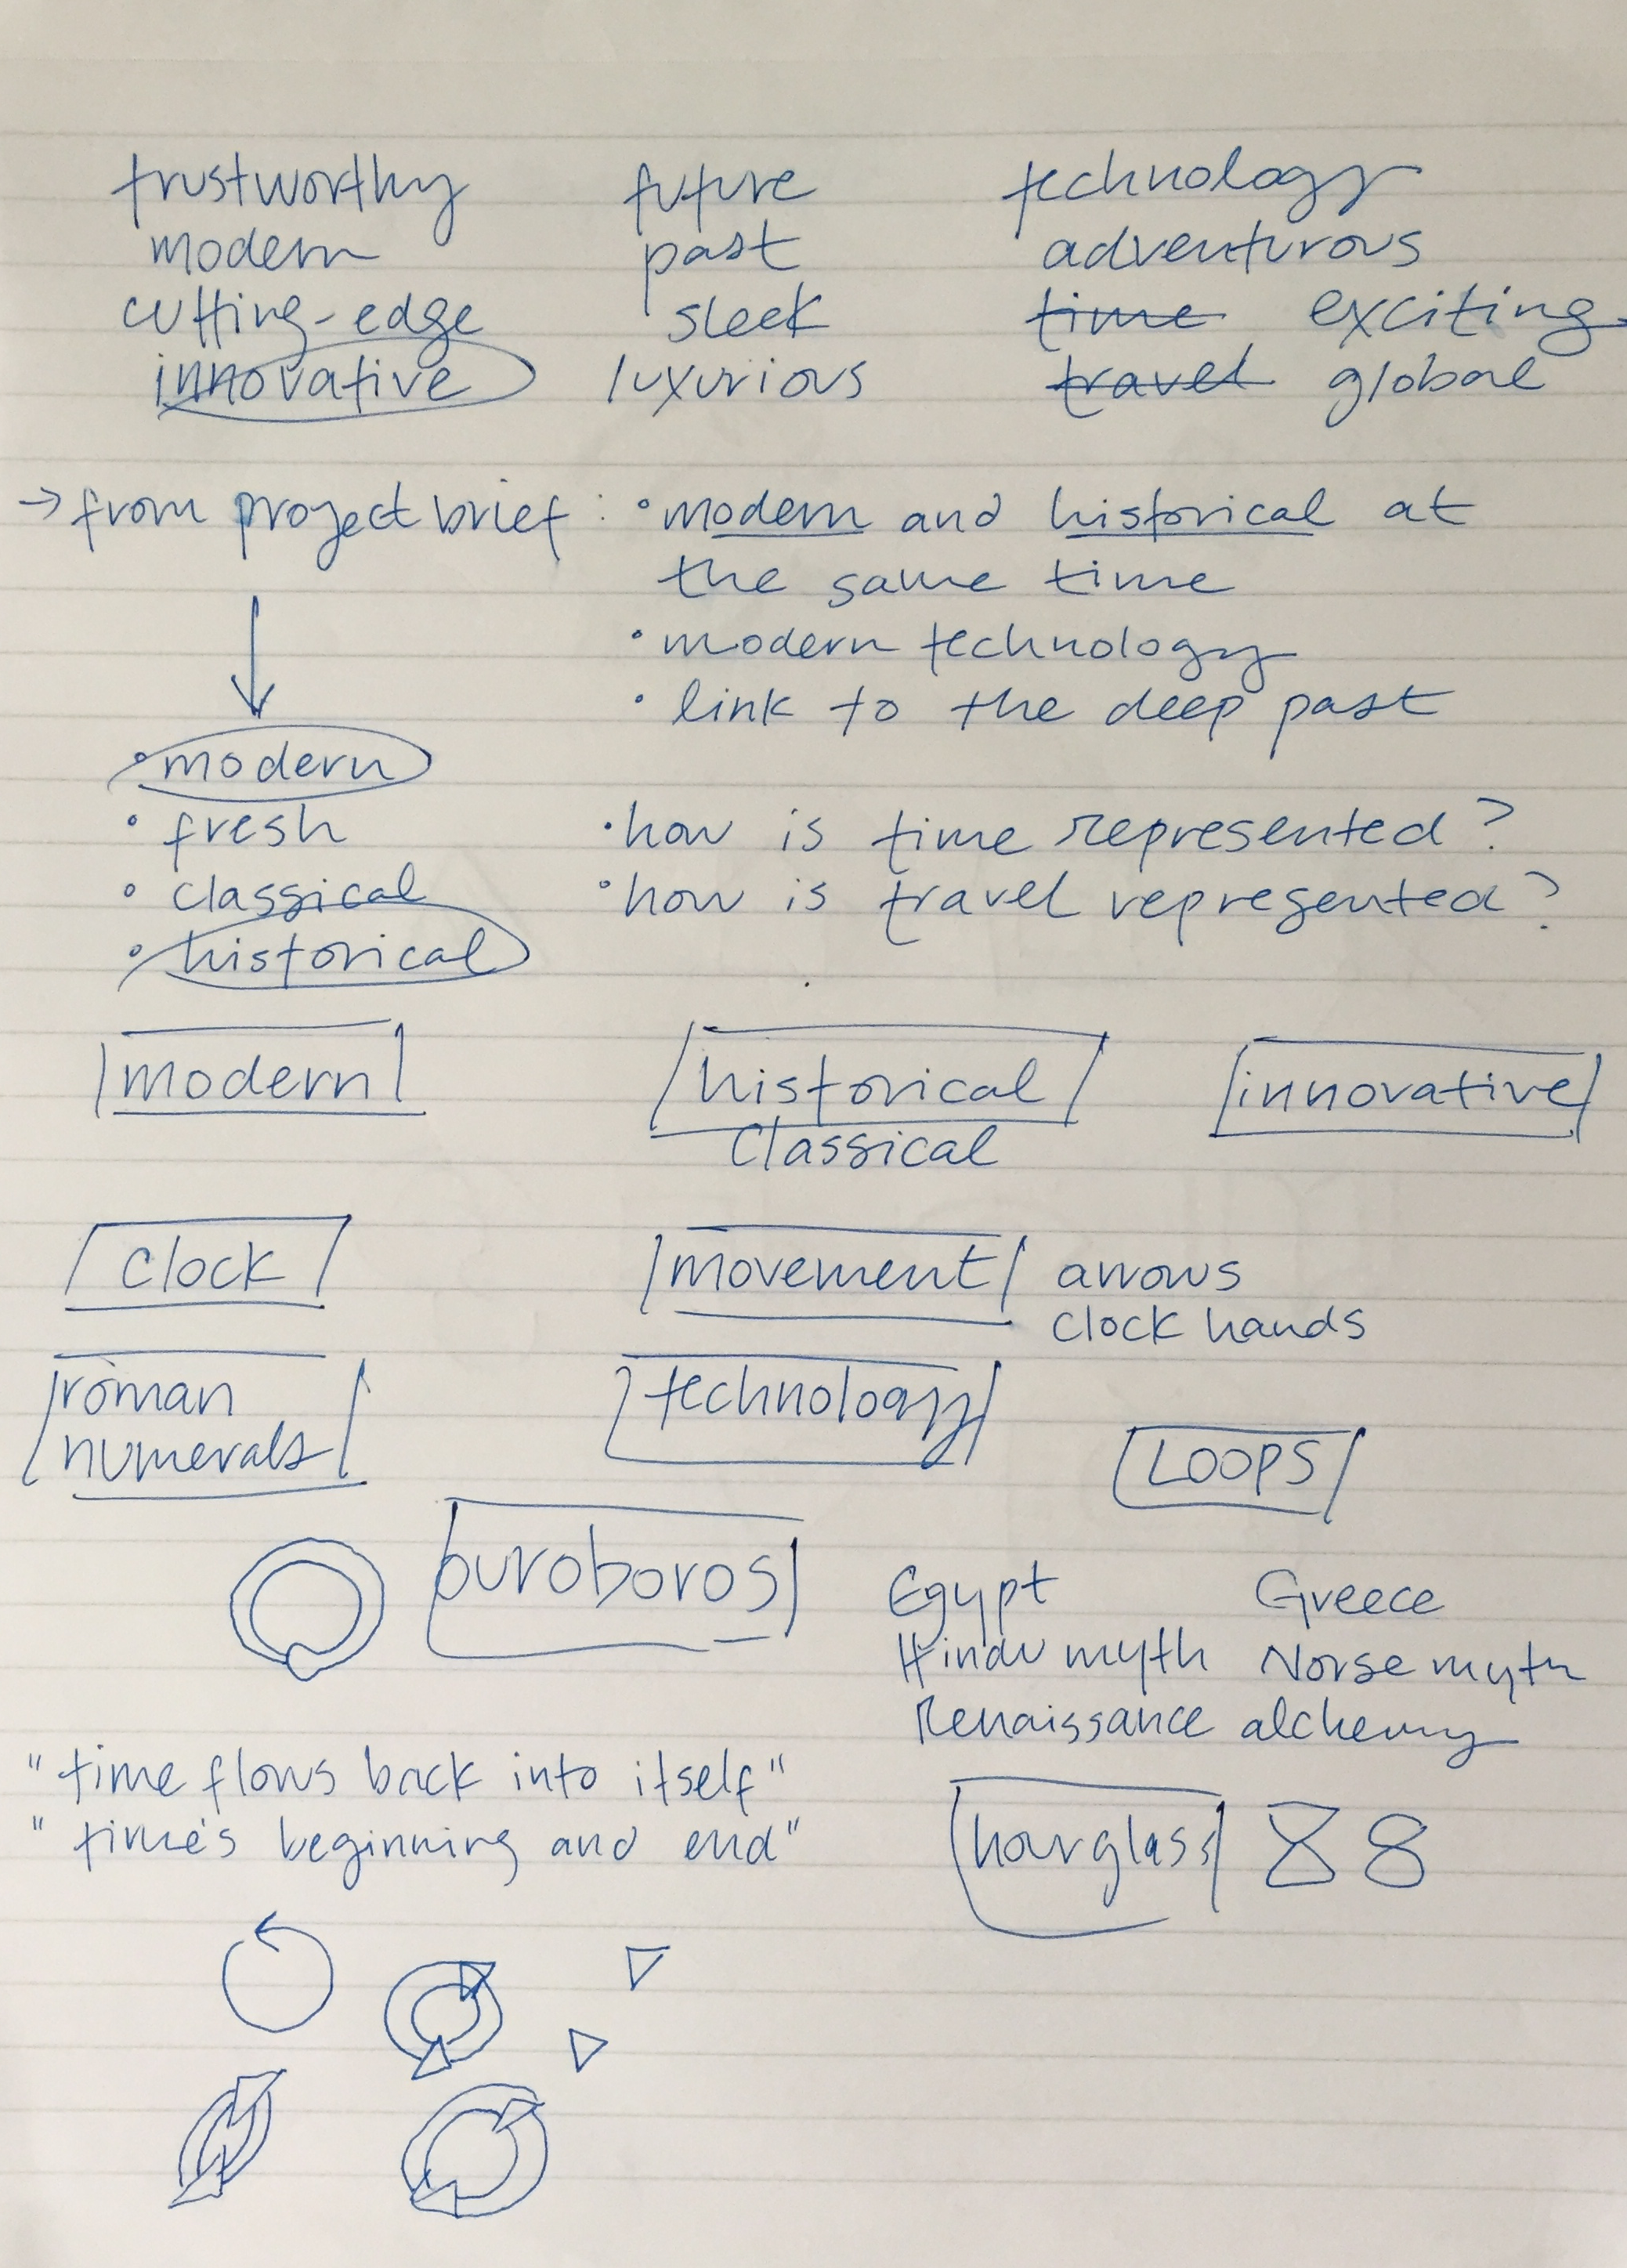 trustworthy future technology
modern past adventurous
cutting-edge sleek time exciting
innovative luxurious travel global
→ from project brief : • modern and historical at
the same time
• modern technology
• link to the deep past
• modern
• fresh
• classical
• historical
• how is time represented?
• how is travel represented?
modern historical innovative
Classical
clock movement arrows
clock hands
roman technology
numerals
LOOPS
ouroboros
Egypt Greece
Hindu myth Norse myth
Renaissance alchemy
"time flows back into itself"
"time's beginning and end"
hourglass